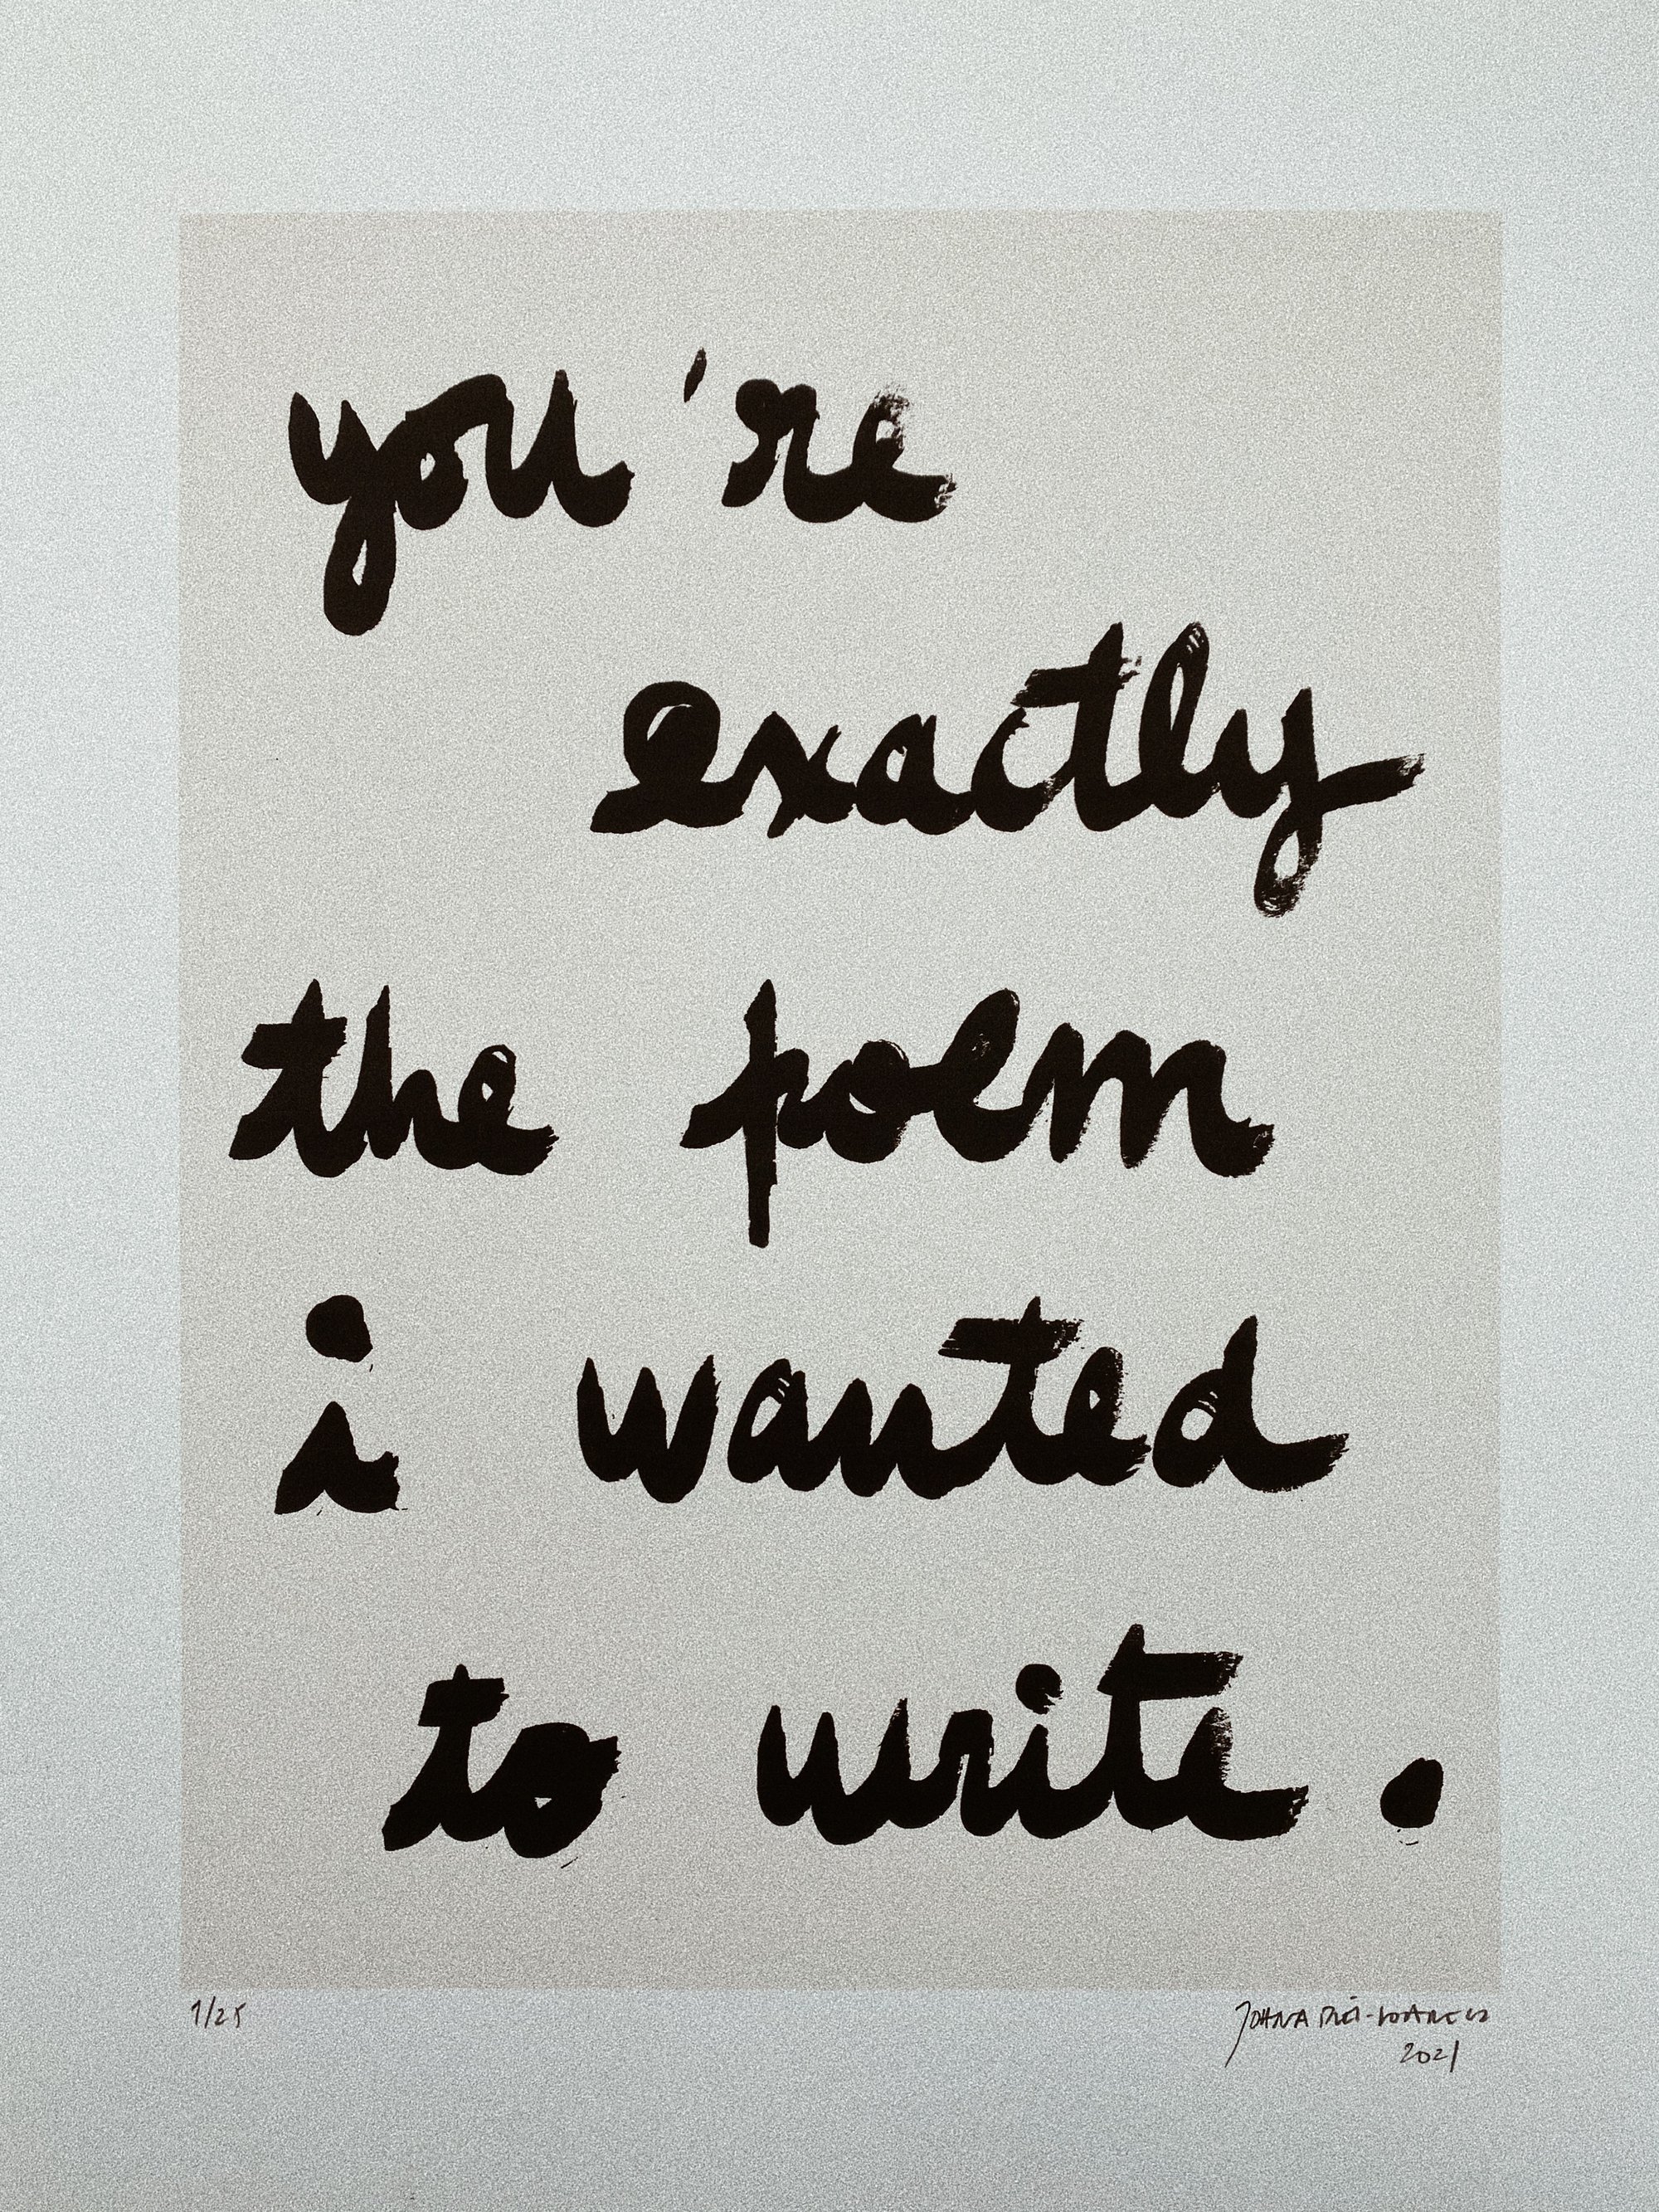 you're
exactly
the poem
i wanted
to write.
1/25
2021